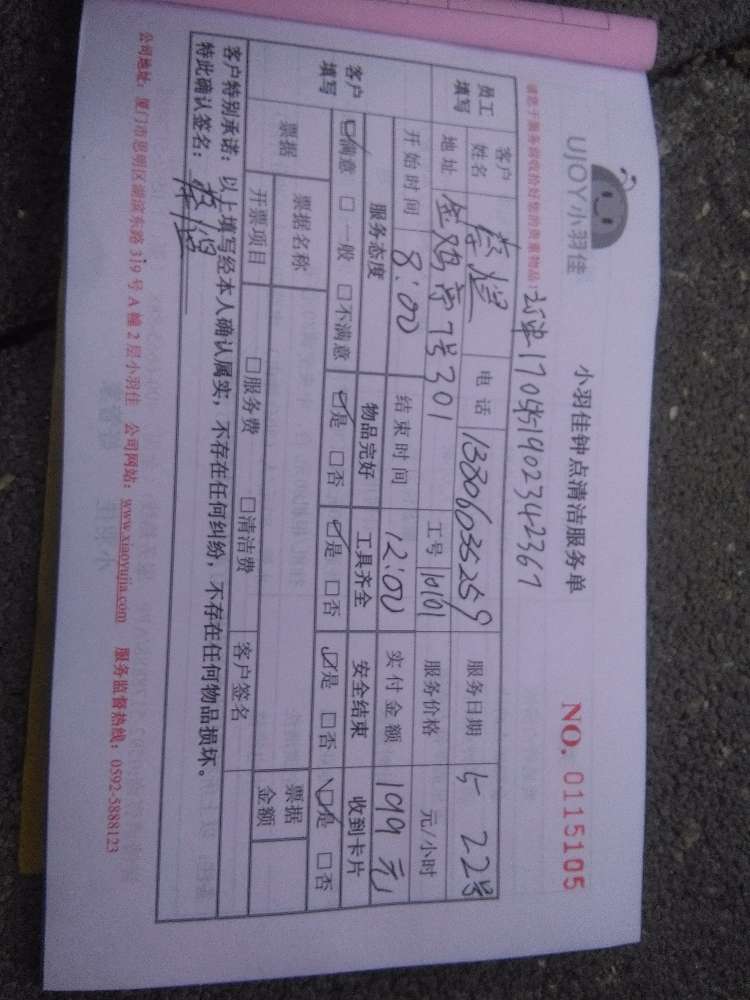 UJOY小羽佳
小羽佳钟点清洁服务单
NO. 0115105
请您于服务前收拾好您的贵重物品:
17051902342367
员工填写 客户姓名 电话 13806035259 服务日期 5 22号
地址 金鸡亭7号301 工号 10101 服务价格 元/小时
开始时间 8:00 结束时间 12:00 实付金额 199元
客户填写 服务态度 物品完好 工具齐全 安全结束 收到卡片
☑满意 □一般 □不满意 ☑是 □否 ☑是 □否 ☑是 □否 ☑是 □否
票据 票据名称 票据金额
开票项目 □服务费 □清洁费 客户签名
客户特别承诺:以上填写经本人确认属实,不存在任何纠纷,不存在任何物品损坏。
特此确认签名:
公司地址:厦门市思明区湖滨东路319号A幢2层小羽佳 公司网站:www.xiaoyujia.com 服务监督热线:0592-5888123